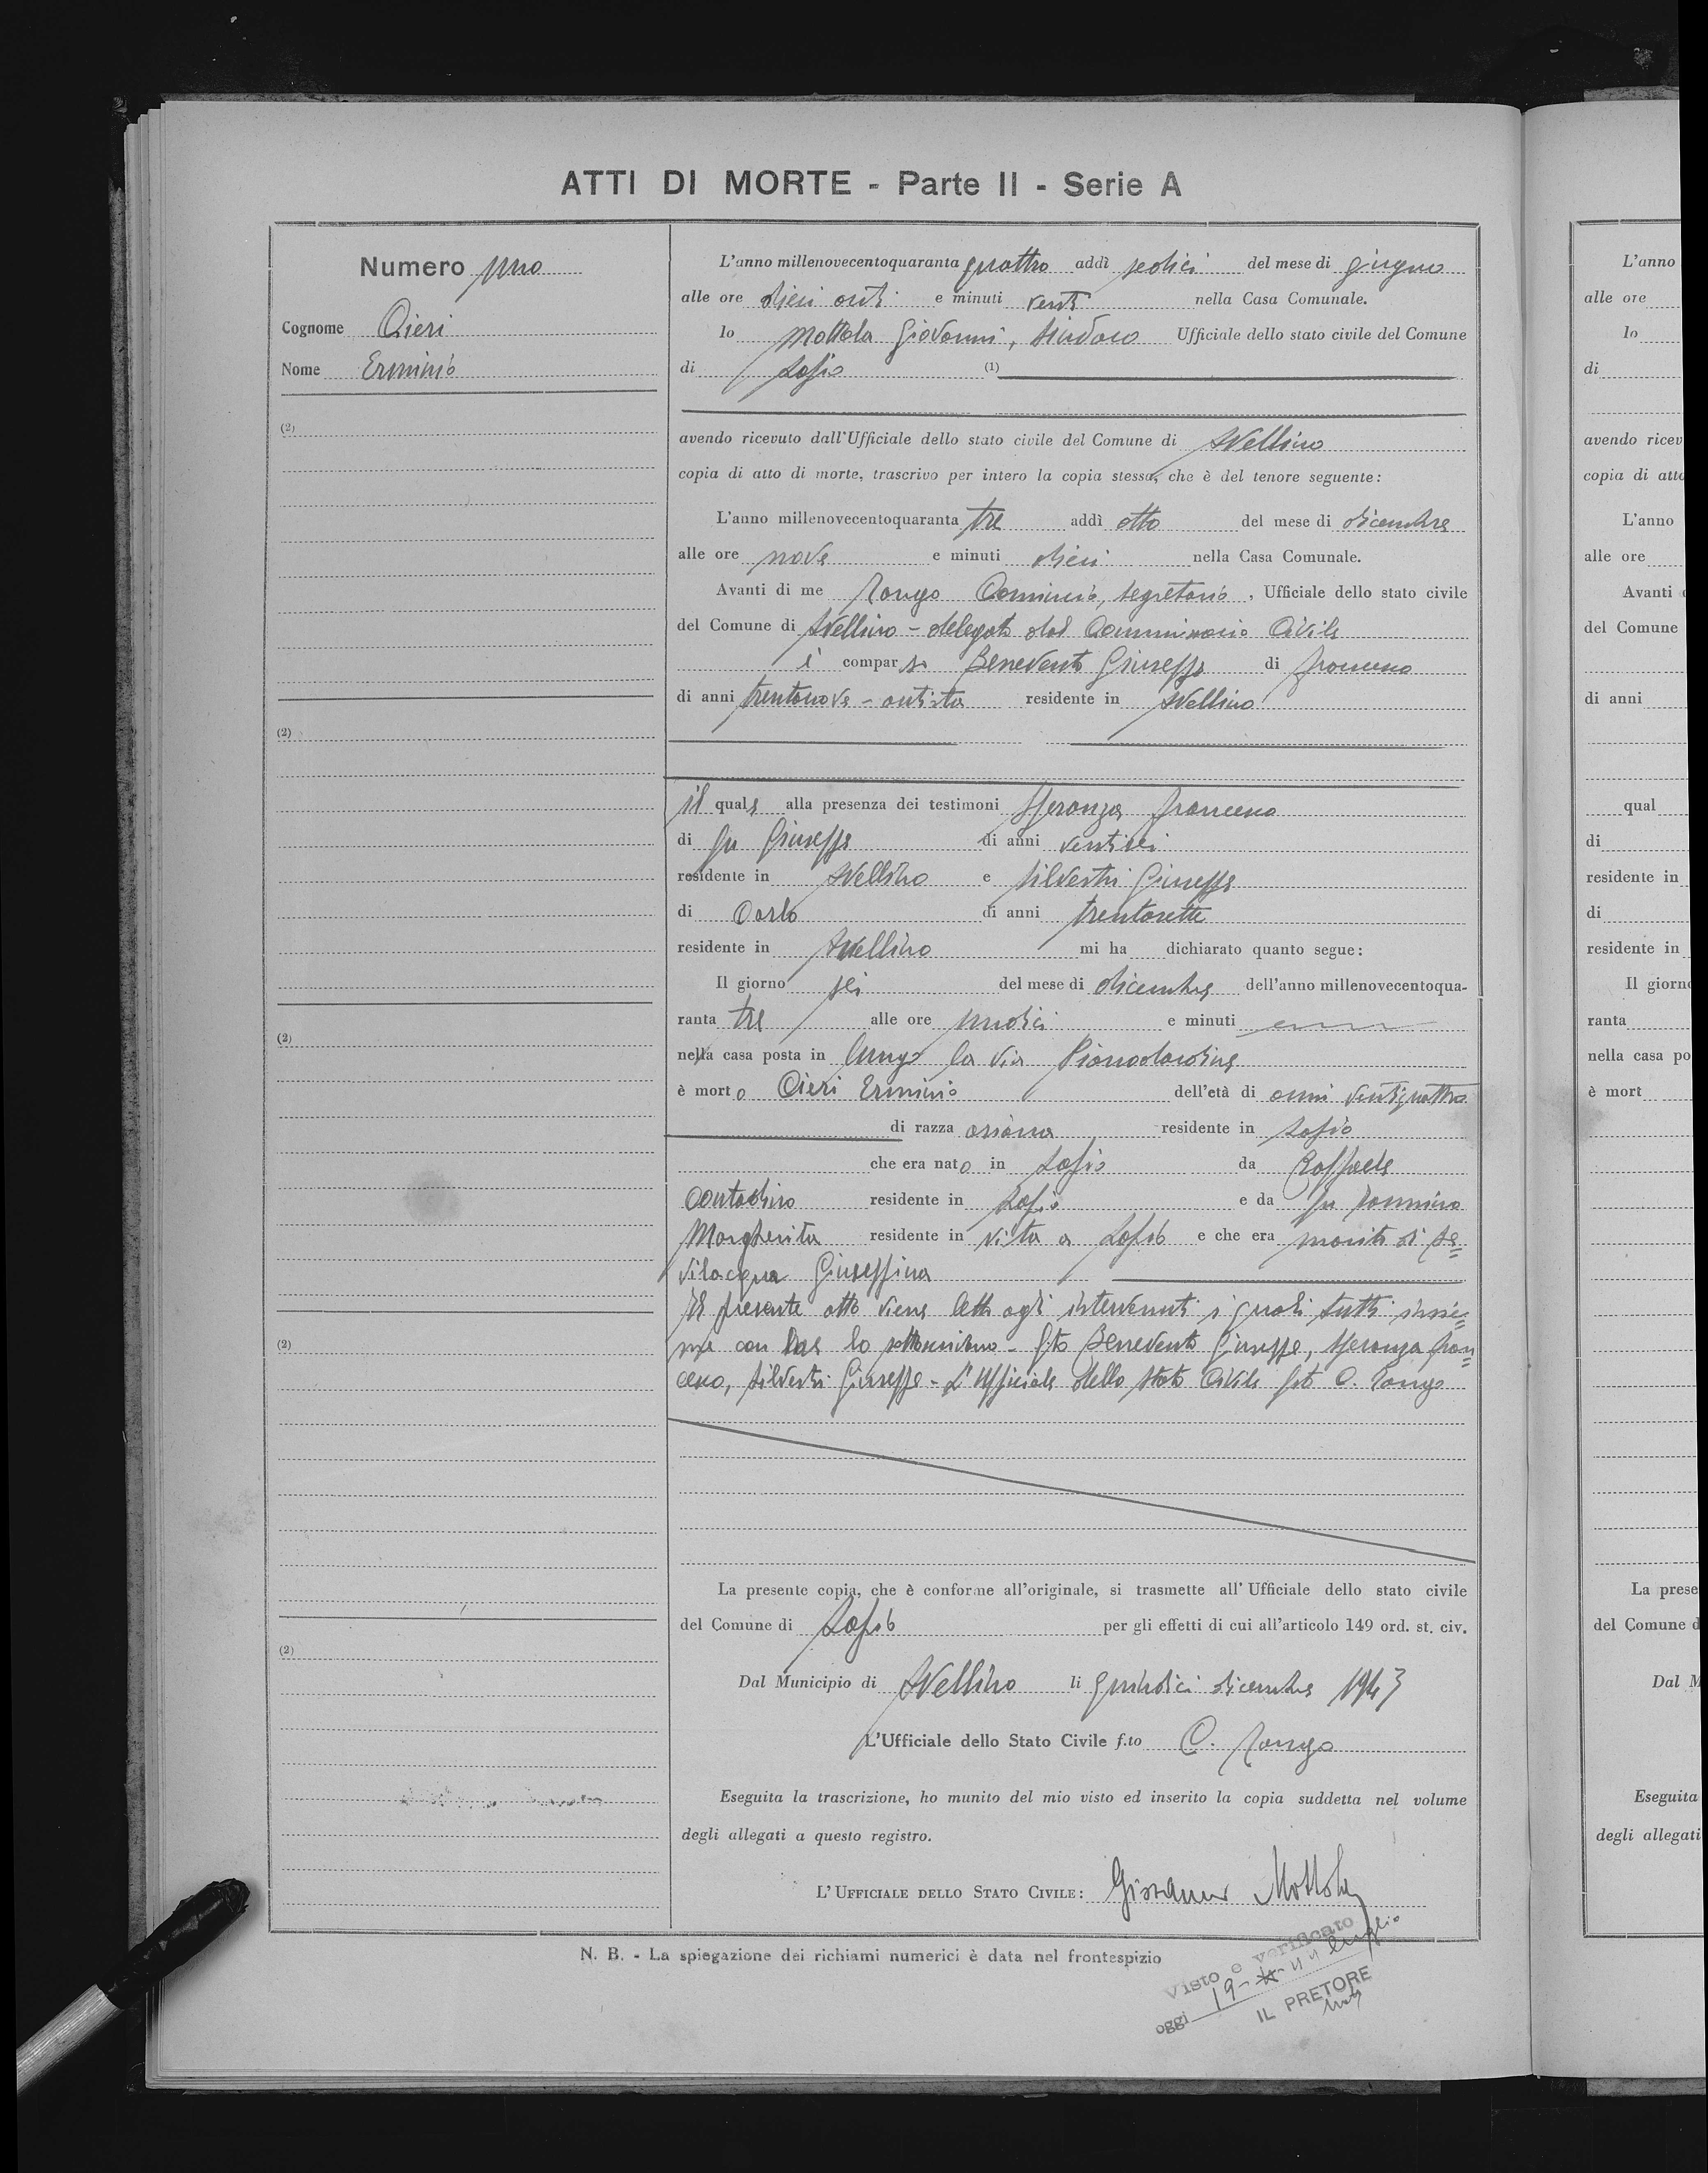 ATTI DI MORTE - Parte II - Serie A
Numero uno
Cognome Cieri
Nome Erminio
(2)
(2)
(2)
(2)
(2)
L'anno millenovecentoquaranta quattro addì sedici del mese di giugno
alle ore dieci e minuti venti nella Casa Comunale.
Io Mottola Giovanni, Sindaco Ufficiale dello stato civile del Comune
di Lapio (1)
avendo ricevuto dall'Ufficiale dello stato civile del Comune di Avellino
copia di atto di morte, trascrivo per intero la copia stessa, che è del tenore seguente:
L'anno millenovecentoquaranta tre addì otto del mese di dicembre
alle ore nove e minuti dieci nella Casa Comunale.
Avanti di me Rongo Carminio, segretario, Ufficiale dello stato civile
del Comune di Avellino - delegato dal Commissario Civile
è comparso Benevento Giuseppe di Francesco
di anni trentanove - autista residente in Avellino
il quale alla presenza dei testimoni Speranza Francesco
di fu Giuseppe di anni ventisei
residente in Avellino e Silvestri Giuseppe
di Carlo di anni trentasette
residente in Avellino mi ha dichiarato quanto segue:
Il giorno sei del mese di dicembre dell'anno millenovecentoqua-
ranta tre alle ore undici e minuti
nella casa posta in lungo la via Pianodardine
è morto Cieri Erminio dell'età di anni ventiquattro
di razza ariana residente in Lapio
che era nato in Lapio da Raffaele
contadino residente in Lapio e da fu
Margherita residente in vita a Lapio e che era marito di Be=
vilacqua Giuseppina
Il presente atto viene letto agli intervenuti i quali tutti insie=
me con me lo sottoscrivono - fto Benevento Giuseppe, Speranza Fran=
cesco, Silvestri Giuseppe - L'Ufficiale dello Stato Civile fto C. Rongo
La presente copia, che è conforme all'originale, si trasmette all'Ufficiale dello stato civile
del Comune di Lapio per gli effetti di cui all'articolo 149 ord. st. civ.
Dal Municipio di Avellino li quindici dicembre 1943
L'Ufficiale dello Stato Civile f.to C. Rongo
Eseguita la trascrizione, ho munito del mio visto ed inserito la copia suddetta nel volume
degli allegati a questo registro.
L'UFFICIALE DELLO STATO CIVILE: Giovanni Mottola
N. B. - La spiegazione dei richiami numerici è data nel frontespizio
Visto e verificato
oggi 19 luglio
IL PRETORE
L'anno
alle ore
Io
di
avendo ricev
copia di atto
L'anno
alle ore
Avanti
del Comune
di anni
qual
di
residente in
di
residente in
Il giorno
ranta
nella casa po
è mort
La prese
del Comune d
Dal M
Eseguita
degli allegati